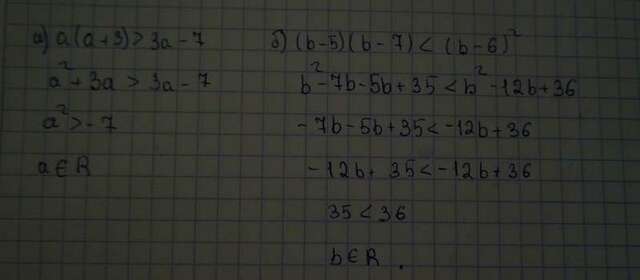 а) a(a+3) > 3a - 7
a² + 3a > 3a - 7
a² > - 7
a ∈ R
б) (b-5)(b-7) < (b-6)²
b² - 7b - 5b + 35 < b² - 12b + 36
- 7b - 5b + 35 < - 12b + 36
- 12b + 35 < - 12b + 36
35 < 36
b ∈ R.